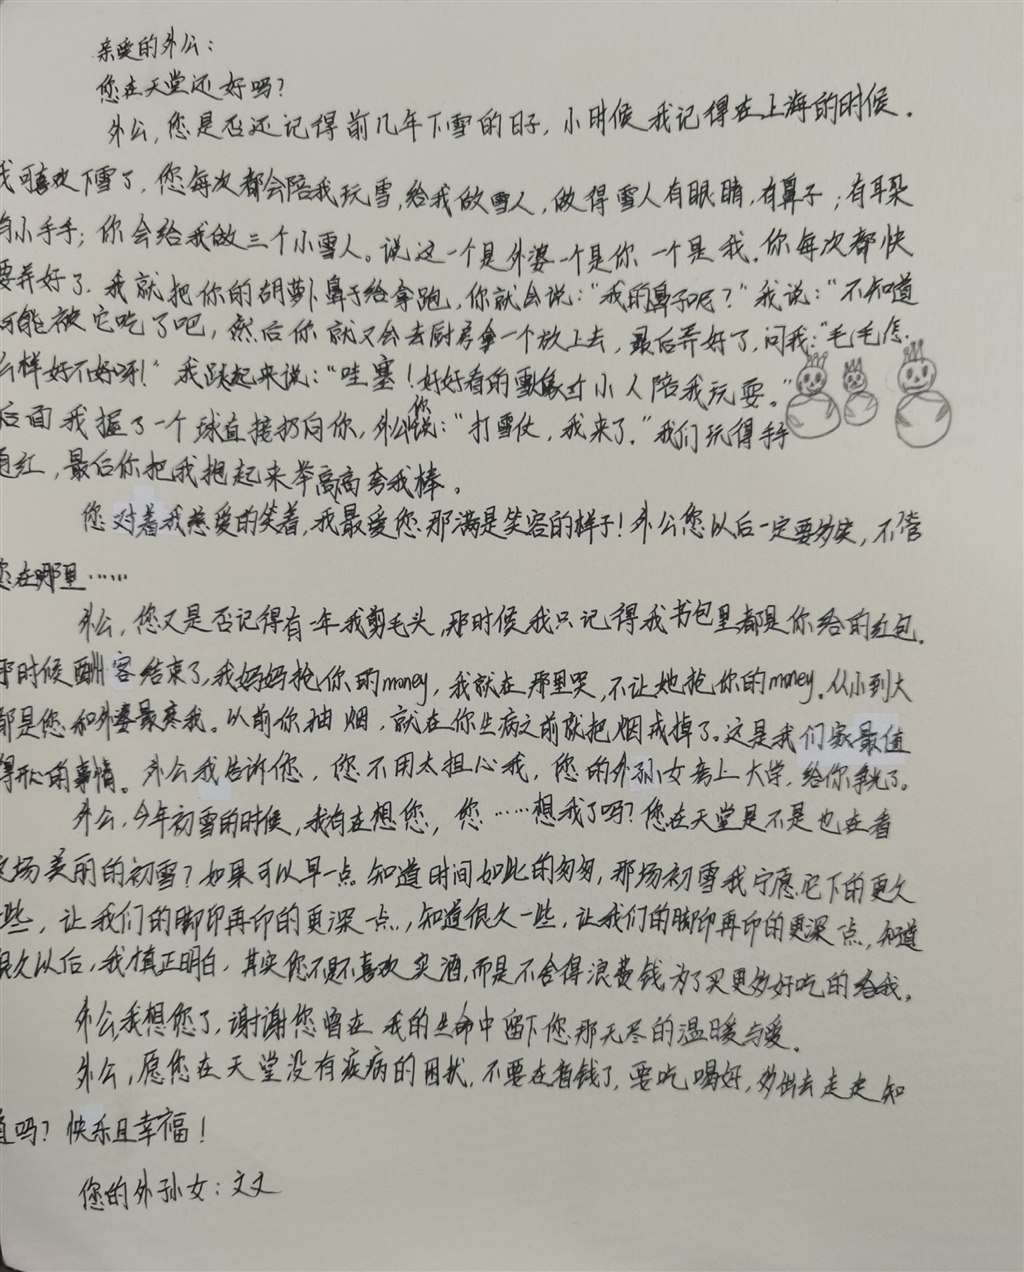 亲爱的外公：
您在天堂还好吗？
外公，您是否还记得前几年下雪的日子，小时候我记得在上海的时候。
我可喜欢下雪了，您每次都会陪我玩雪，给我做雪人，做得雪人有眼睛，有鼻子；有耳朵
有小手手；你会给我做三个小雪人。说这一个是外婆一个是你 一个是我。你每次都快
要弄好了，我就把你的胡萝卜鼻子给拿跑，你就会说：“我的鼻子呢？”我说：“不知道
可能被它吃了吧，然后你就又会去厨房拿一个放上去，最后弄好了，问我：“毛毛怎
么样好不好呀！”我跃起来说：“哇塞！好好看的雪小人陪我玩耍。”
后面我握了一个球直接扔向你，外公您说：“打雪仗，我来了。”我们玩得手手
通红，最后你把我抱起来举高高夸我棒。
您对着我慈爱的笑着，我最爱您那满是笑容的样子！外公您以后一定要多笑，不管
您在哪里……
外公，您又是否记得有一年我剪毛头，那时候我只记得我书包里都是你给的红包。
那时候酬客结束了，我妈妈抢你的money，我就在那里哭，不让她抢你的money。从小到大
都是您和外婆最疼我。以前你抽烟，就在你生病之前就把烟戒掉了。这是我们家最值
得开心的事情。外公我告诉您，您不用太担心我，您的外孙女考上大学，给你争光了。
外公，今年初雪的时候，我有在想您，您……想我了吗？您在天堂是不是也在看
这场美丽的初雪？如果可以早一点知道时间如此的匆匆，那场初雪我宁愿它下的更久
一些，让我们的脚印再印的更深一点，知道很久一些，让我们的脚印再印的更深一点，知道
很久以后，我真正明白，其实您不是不喜欢买酒，而是不舍得浪费钱，为了买更多好吃的给我。
外公，我想您了，谢谢您曾在我的生命中留下您那无尽的温暖与爱。
外公，愿您在天堂没有疾病的困扰，不要在省钱了，要吃喝好，多出去走走知
道吗？快乐且幸福！
您的外孙女：文文